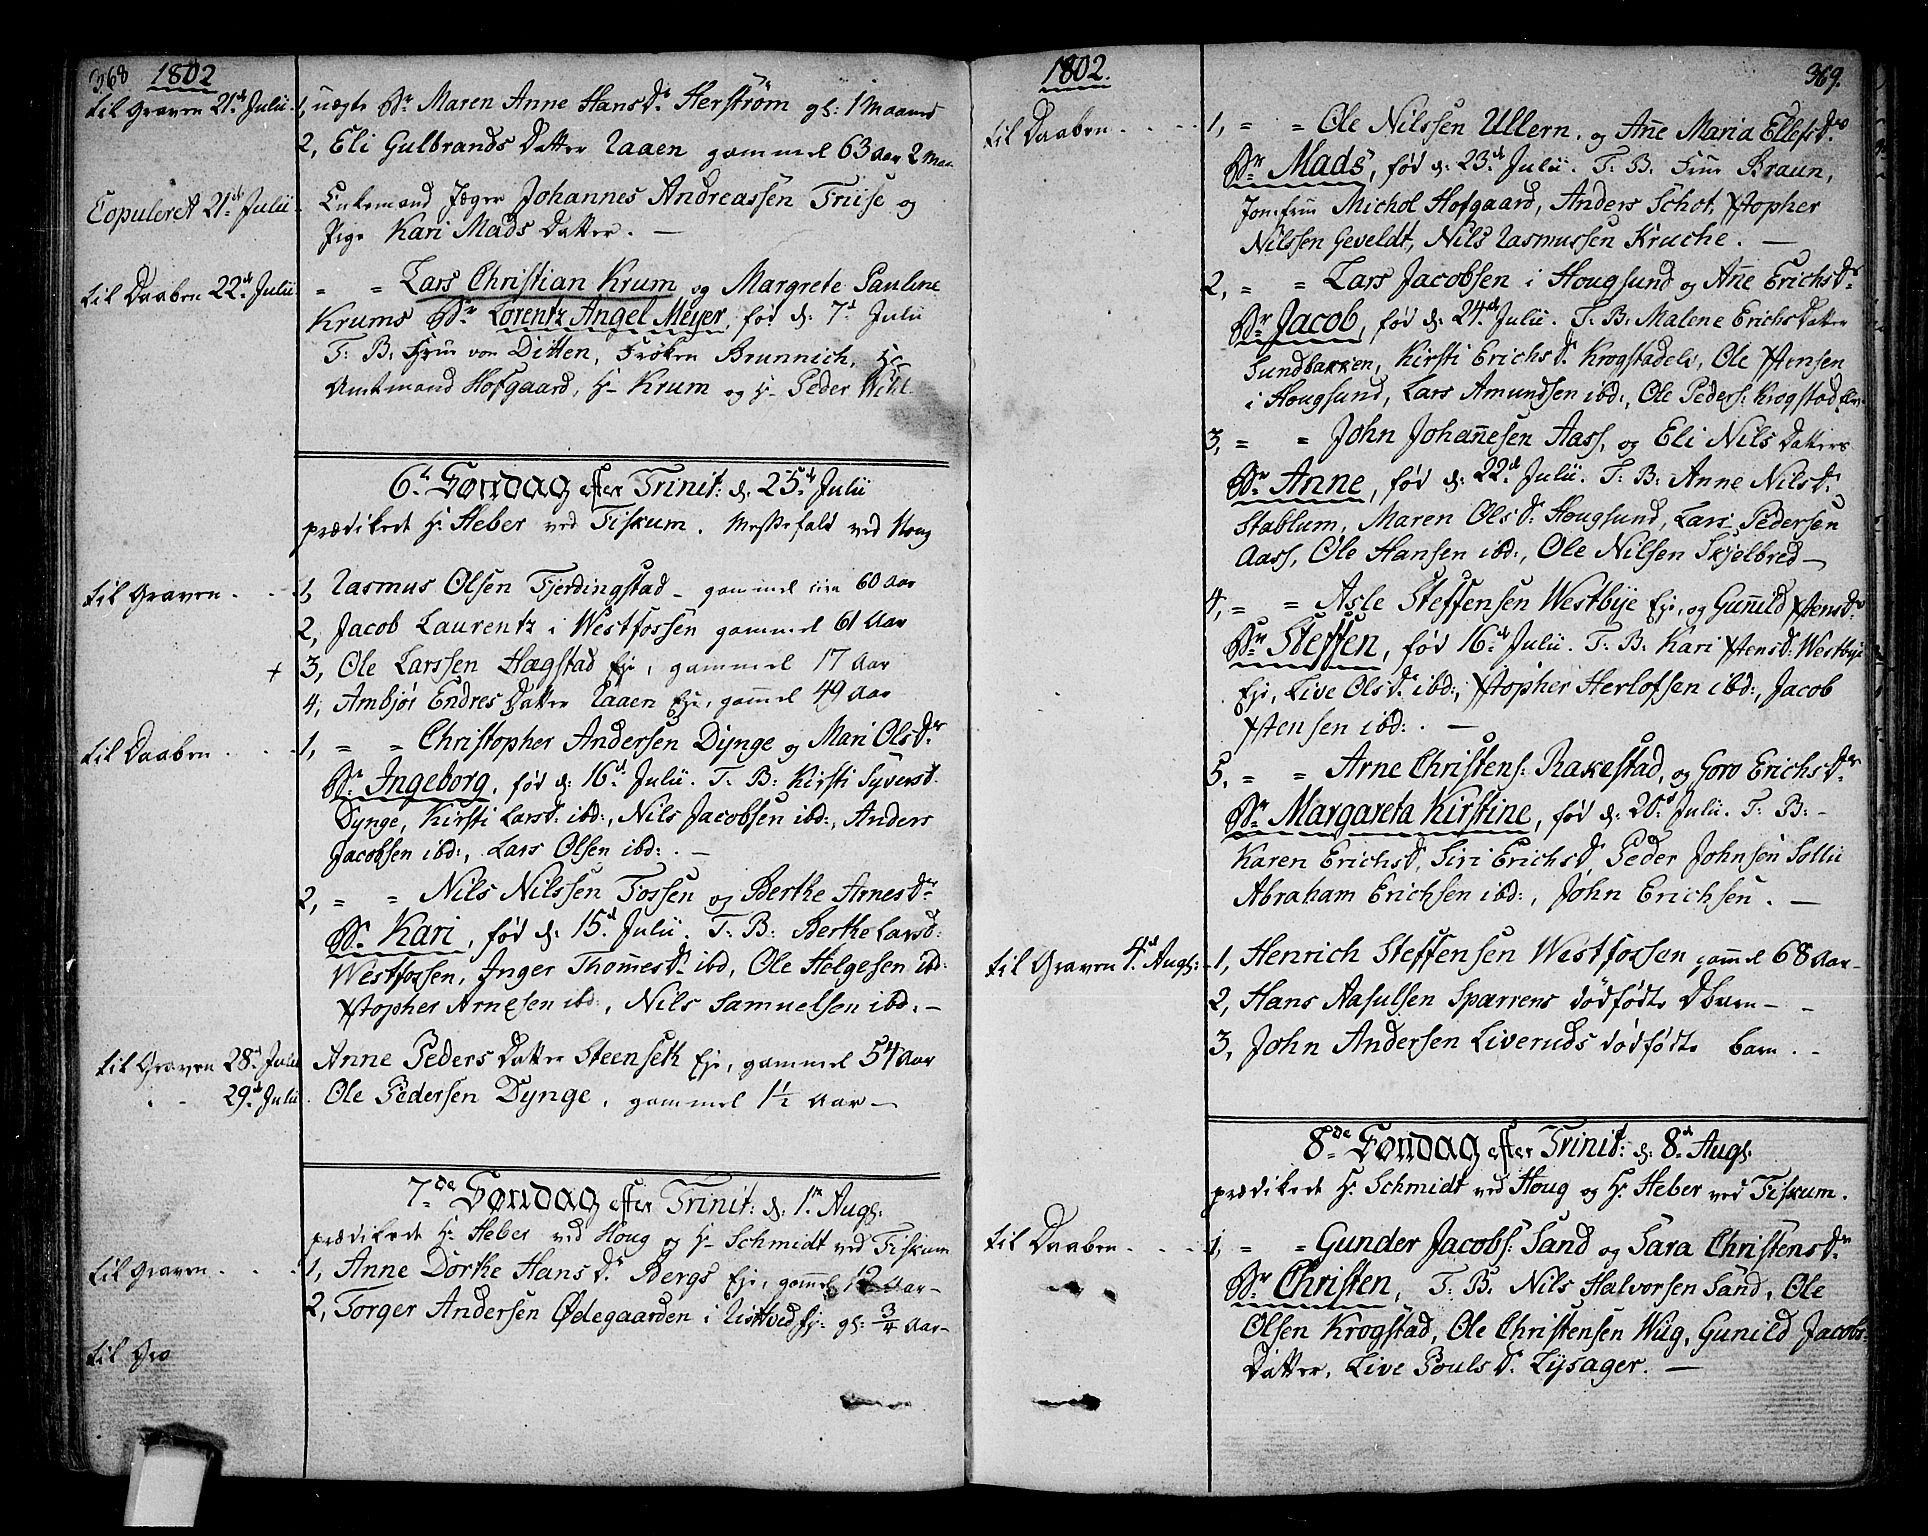 368 1802
til Graven 21d Julii. 1, uægte Br Maren Anne Hans Dr Herström gl: 1 Maaned
2, Eli Gulbrands Datter Raaen gammel 63 Aar 2 Mdr
Copuleret 21d Julii. Enkemand Jæger Johannes Andreassen Friise og
Pige Kari Mads Datter. —
til Daaben 22d Julii = = Lars Christian Krum og Margrete Pauline
Krums Br Lorentz Angel Meyer før d. 7d Julii
F: B: Frue von Ditten, Frøken Brunnich, Hr
Amtmand Hofgaard, H- Krum og H- Peder
6te Søndag efter Trinit: d. 25d Julii
prædikede Hr Heber ved Fiskum. Messefald ved Houg
til Graven . . 1, Rasmus Olsen Fjerdingstad - gammel 60 Aar
2, Jacob Laurentz i Westfossen gammel 61 Aar
+ 3, Ole Larssen Hægstad Eje, gammel 17 Aar
4, Ambjør Endres Datter Raaen Eje, gam̄el 49 Aar
til Daaben . . . 1, = = Christopher Andersen Dynge og Mari Ols Dr
Br Ingeborg, før d: 16d Julii. F: B: Kirsti Syversd.
Dynge, Kirsti Larsd: ibd:, Nils Jacobsen ibd:, Anders
Jacobsen ibd:, Lars Olsen ibd: . —
2, = = Nils Nilssen Fossen og Berthe Arnes Dr
Br Kari, før d: 15d Julii. F: B: Berthe Larsd:
Westfossen, Inger Thom̄es Dr ibd, Ole Helgesen ibd:
Xstopher Arnesen ibd:, Nils Samuelsen ibd. —
til Graven 28d Julii Anne Peders Datter Steenseth Eje, gammel 54 Aar
. - 29d Julii. Ole Pedersen Dynge, gammel 1½ Aar —
7de Søndag efter Trinit: d: 1te Aug:
prædikede Hr Heber ved Houg og H- Schmidt ved Fiskum
til Graven . . . 1, Anne Dorthe Hans Dr Bergs Eje, gam̄el 12 Aar —
2, Torger Andersen Ødegaarden i Eje: gl: ¾ Aar —
til Gra
1802. 369.
til Daaben . . . 1, = = Ole Nilssen Ullern. og An̄e Maria Ellefs Dr
Br Mads, før d: 23d Julii. F. B. Frue Braun,
Jomfru Michol Hofgaard, Anders Schot, Xstopher
Nilssen Geveldt, Nils Rasmussen Kruche. —
2, = = Lars Jacobsen i Hougsund og An̄e Erichs Dr
Br Jacob, før d: 24d Julii. F. B: Malene Erichs Datter
Sundbakken, Kirsti Erichs Dr Krogstadelv, Ole Xstensen
i Hougsund, Lars Amundsen ibd:, Ole Peders: Krogstad elv.
3, = = John Johan̄esen Aass, og Eli Nils Datters
Br Anne, før d: 22d Julii. F: B: Anne Nils Dr
Stablum, Maren Ols Dr Hougsund, Lars Pedersen
Aass, Ole Hansen ibd:, Ole Nilsen Skjelbred —
4, = = Asle Steffensen Westbye Eje, og Gun̄ild Xstens Dr
Br Steffen, før 16d Julii. F. B. Kari Xstens Dr Westbye
Eje, Live Ols Dr ibd:, Xstopher Herlofsen ibd:, Jacob
Xstensen ibd: . —
5, = = Arne Christens: Rakestad, og Goro Erichs Dr
Br Margareta Kirstine, før d: 20d Julii. F: B: -
Karen Erichs Dr, Siri Erichs Dr Peder Johnsen Sollii
Abraham Erichsen ibd:, John Erichsen. —
til Graven 4d Aug: 1, Henrich Steffensen Westfossen gam̄el 68 Aar —
2, Hans Aasulsen Sparrens dødfødte Dbarn — -
3, John Andersen Liveruds dødfødte barn . -
8de Søndag efter Trinit: d: 8d Aug:
prædikede Hr Schmidt ved Houg og Hr Heber ved Fiskum.
til Daaben . . . 1, = = Gunder Jacobs: Sand og Sara Christens Dr
Br Christen, F. B. Nils Halvorsen Sand, Ole
Olsen Krogstad, Ole Christensen Wiig, Gunild Jacobs
Datter, Live Pouls Dr Lysager. —